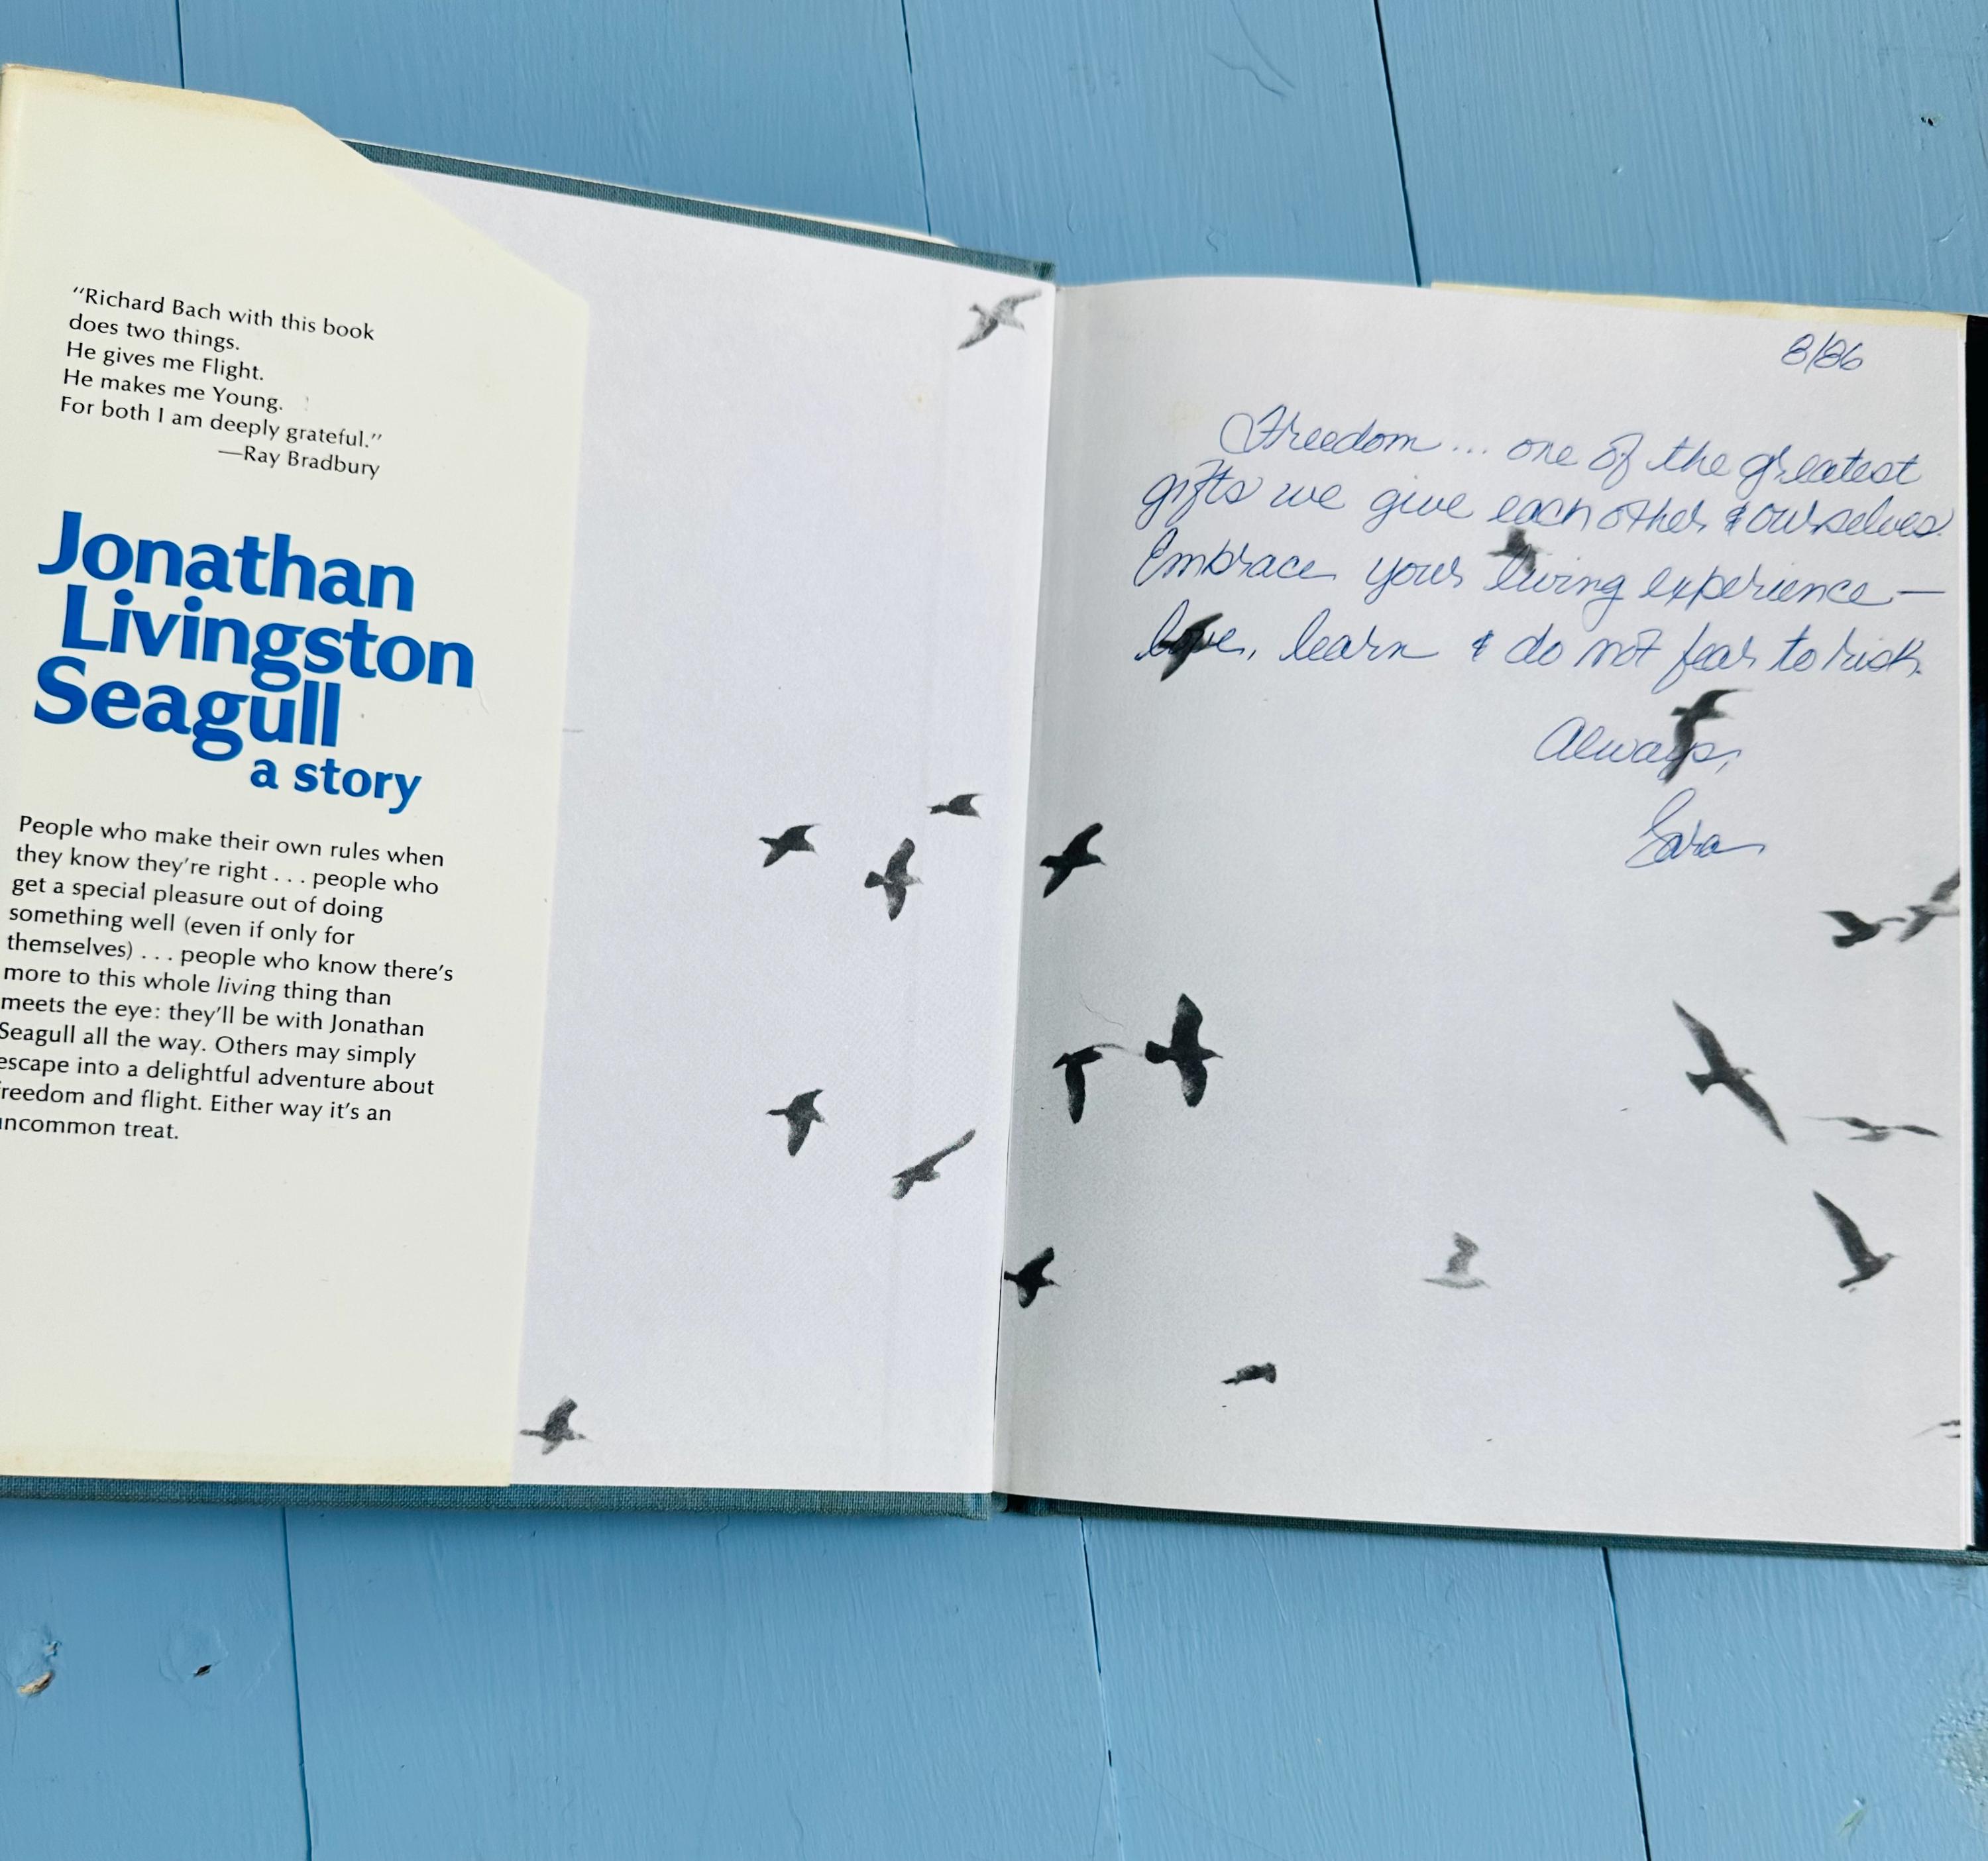 "Richard Bach with this book
does two things.
He gives me Flight.
He makes me Young.
For both I am deeply grateful."
—Ray Bradbury
Jonathan
Livingston
Seagull
a story
People who make their own rules when
they know they're right . . . people who
get a special pleasure out of doing
something well (even if only for
themselves) . . . people who know there's
more to this whole living thing than
meets the eye: they'll be with Jonathan
Seagull all the way. Others may simply
escape into a delightful adventure about
freedom and flight. Either way it's an
uncommon treat.
8/86
Freedom ... one of the greatest
gifts we give each other & ourselves.
Embrace your living experience—
love, learn & do not fear to risk.
Always,
Sara